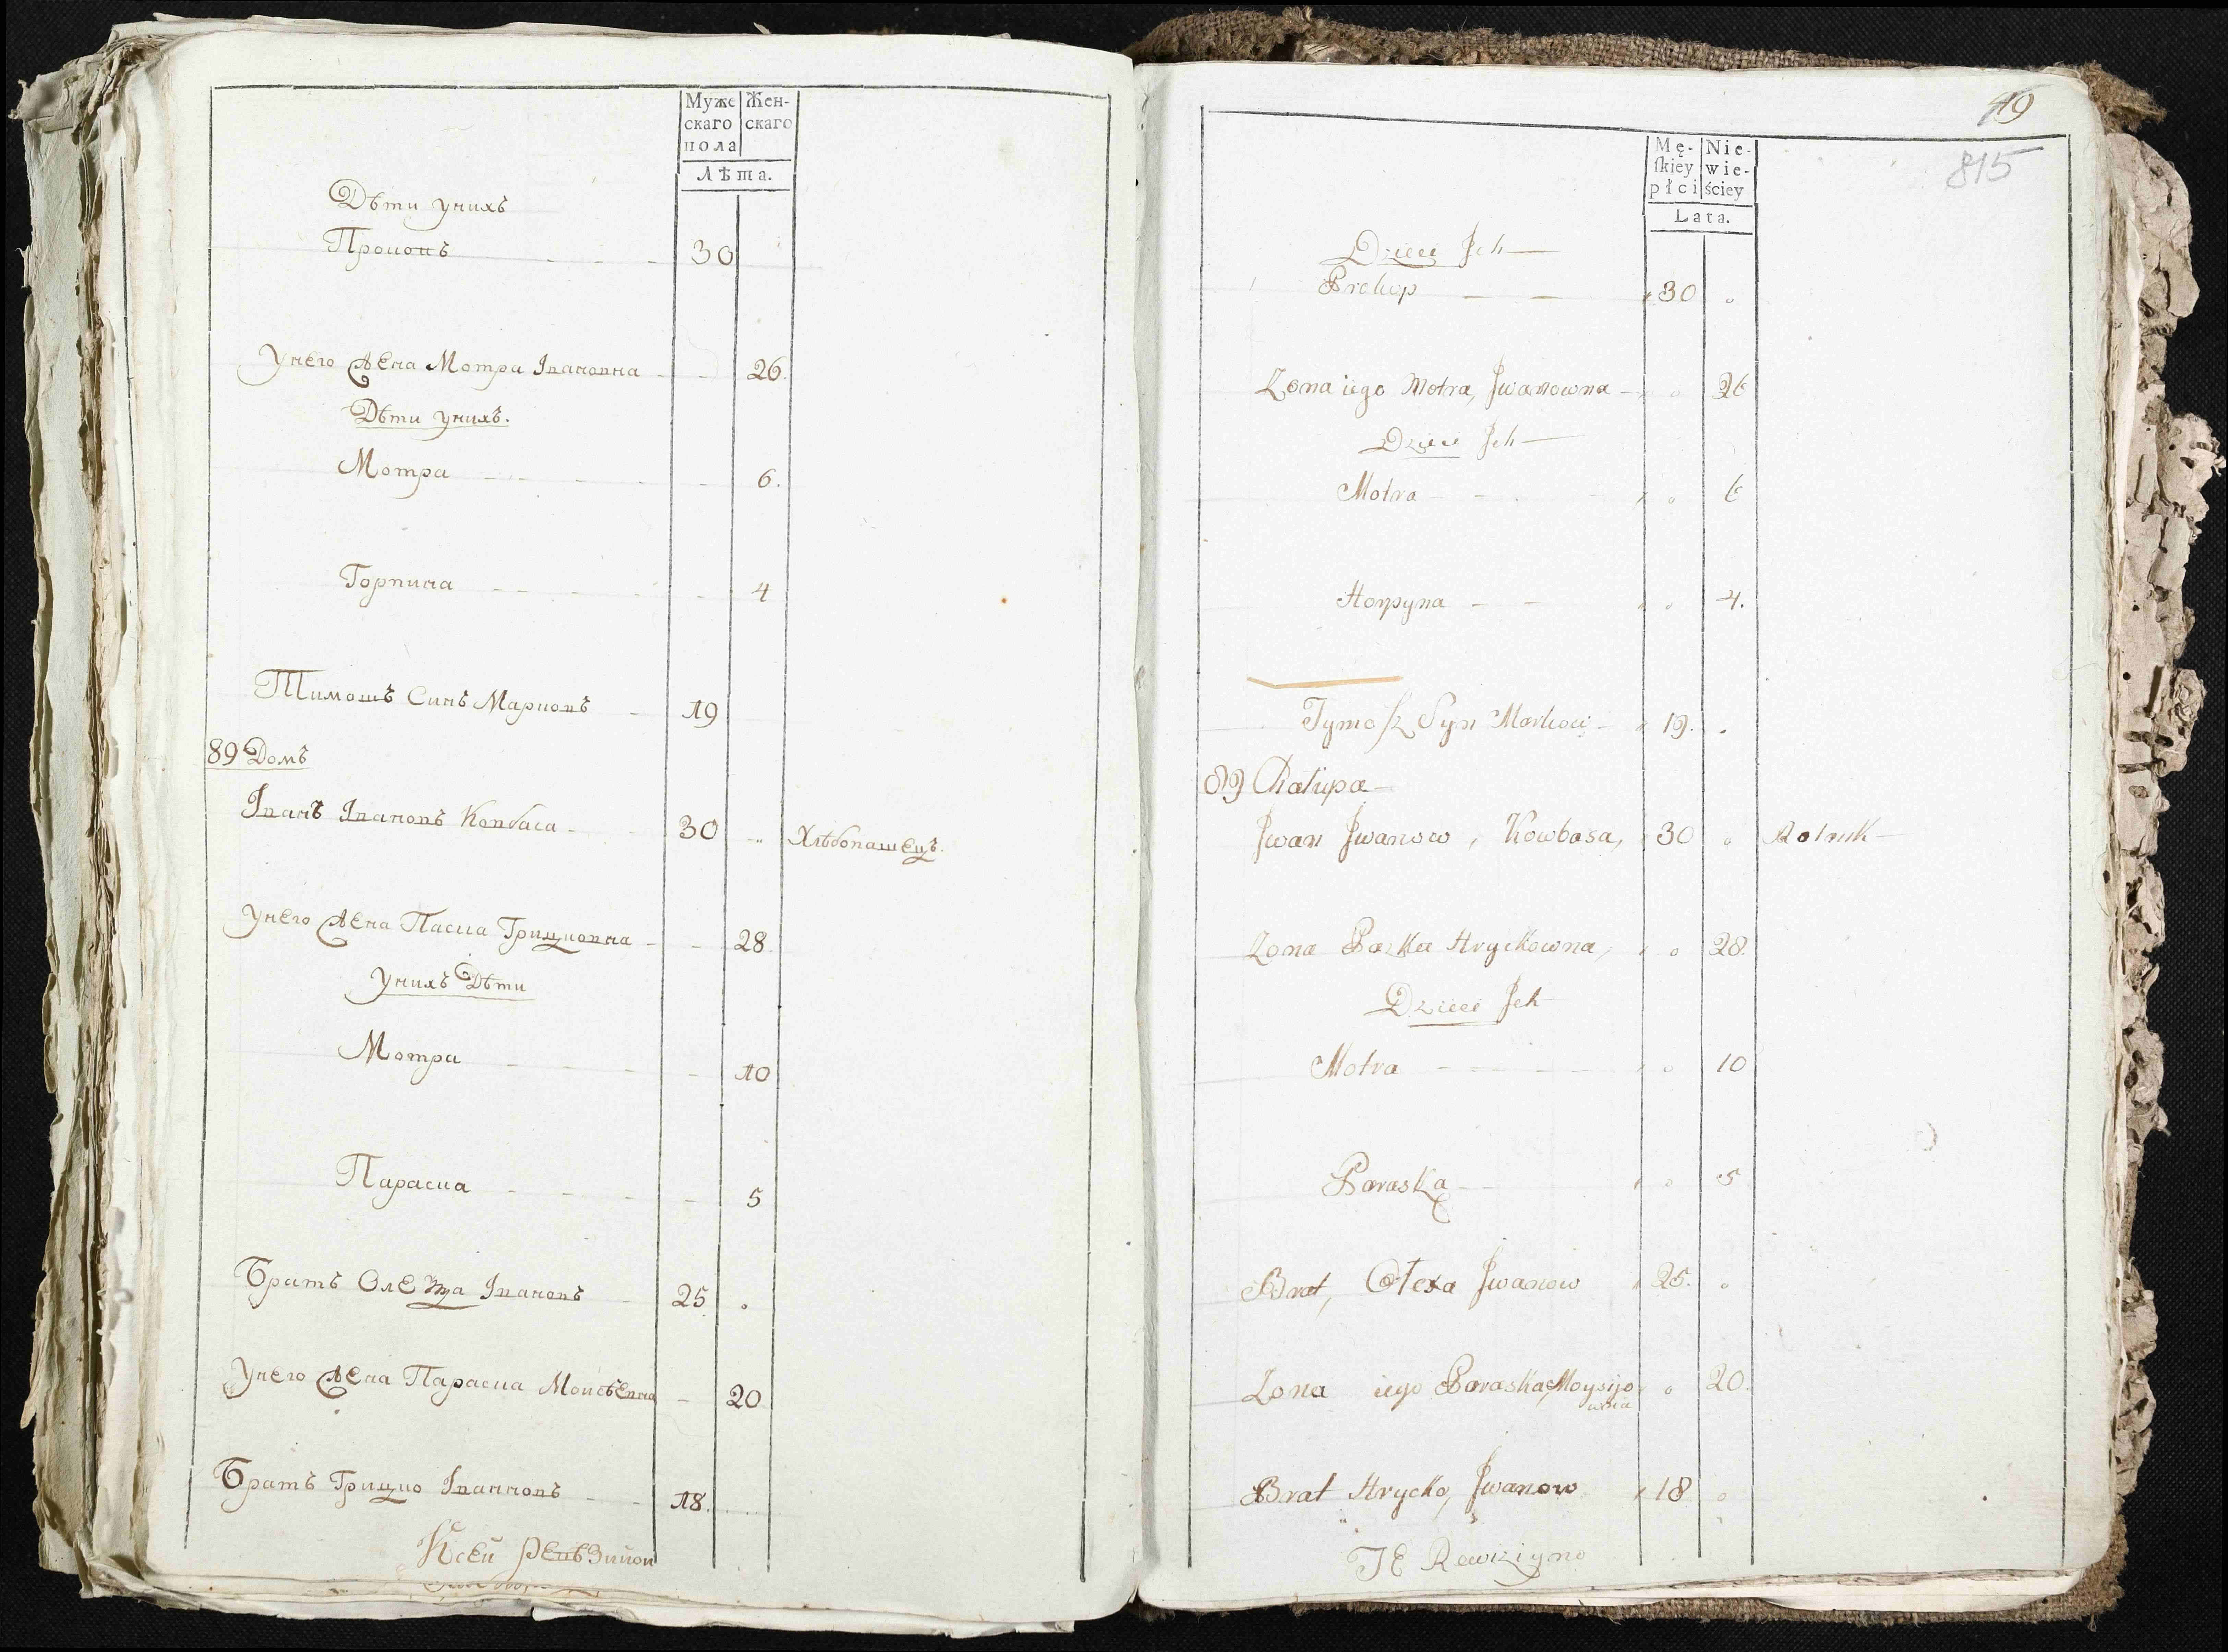 Муже Жен-
скаго скаго
пола
Лѣта.
Дѣти унихъ
Прокопъ 30
Унего жена Мотра Івановна 26.
Дѣти унихъ.
Мотра 6.
Горпина 4
Тимошъ Синъ Марковъ 19
89 Домъ
Іванъ Івановъ Ковбаса 30 Хлѣбопашецъ.
Унего жена Паска Грицковна 28
Унихъ Дѣти
Мотра 10
Параска 5
Братъ Олекза Івановъ 25
Унего жена Параска Моисѣевна 20
Братъ Грицко Івановъ 18.
Ксей
49
815
Mę- Nie-
ſkiey wie-
płci ściey
Lata.
Dzieci Jch
Prokop 30
Zona iego Motra, Jwanowna 26
Dzieci Jch
Motra 6
Horpyna 4.
Tymoſz Syn Markow 19.
89 Chałupa
Jwan Jwanow, Kowbasa, 30 Rolnik
Zona Paska Hryckowna, 28.
Dzieci Jch
Motra 10
Paraska 5
Brat, Olexa Jwanow 25.
Zona iego Paraska, Moysijo 20.
wna
Brat Hrycko, Jwanow 18
TE Rewizigno